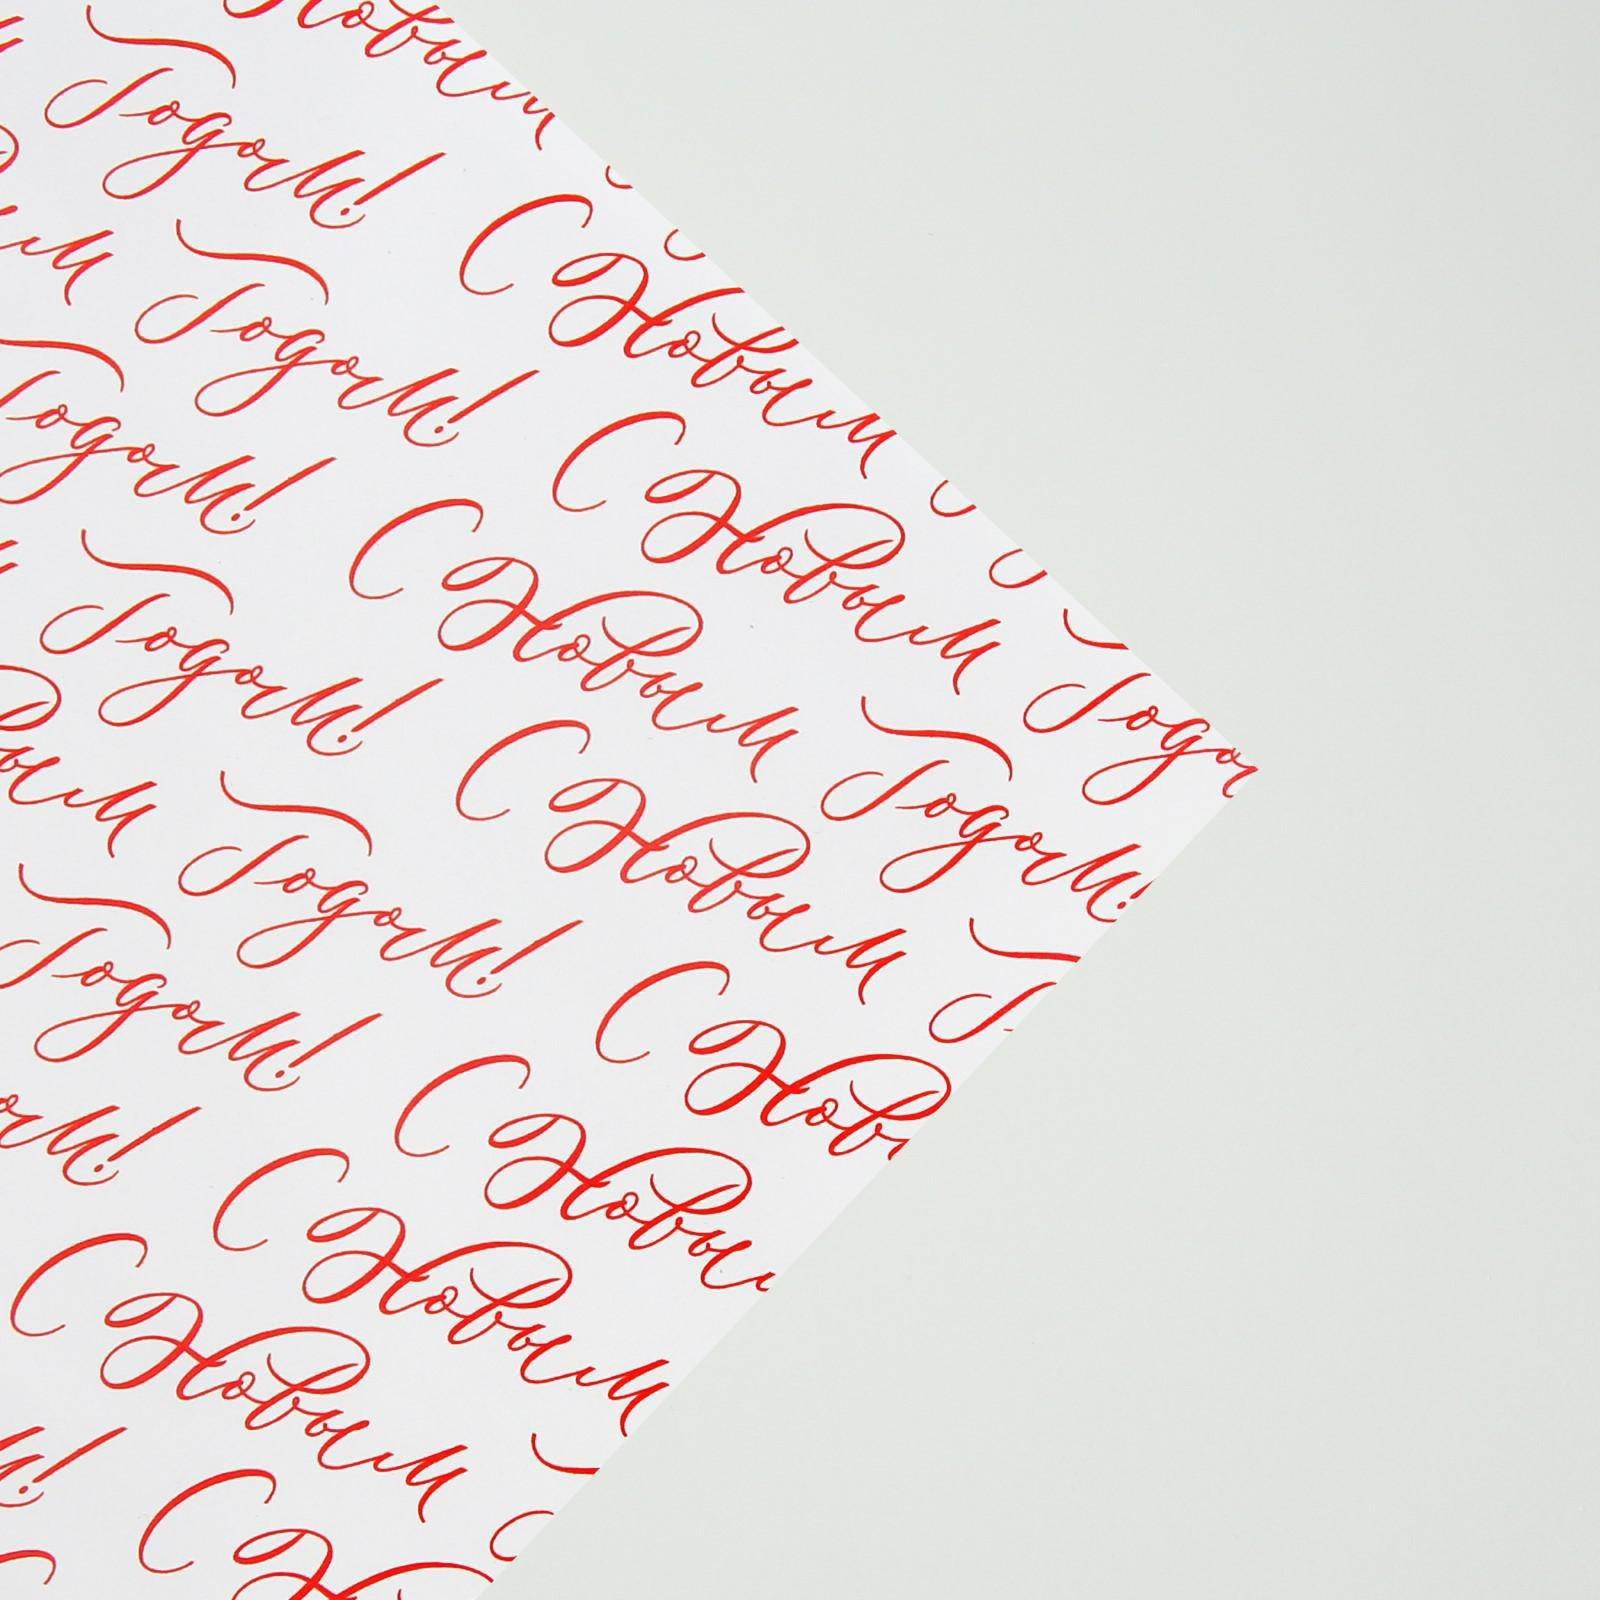 Новым
Годом!
С Новым
Годом!
С Новым Годом
Годом!
С Новым Годом!
Годом!
С Новым Г
Новым Годом!
С Новы
Годом!
С Новым
Годом!
С Новым
С Новым